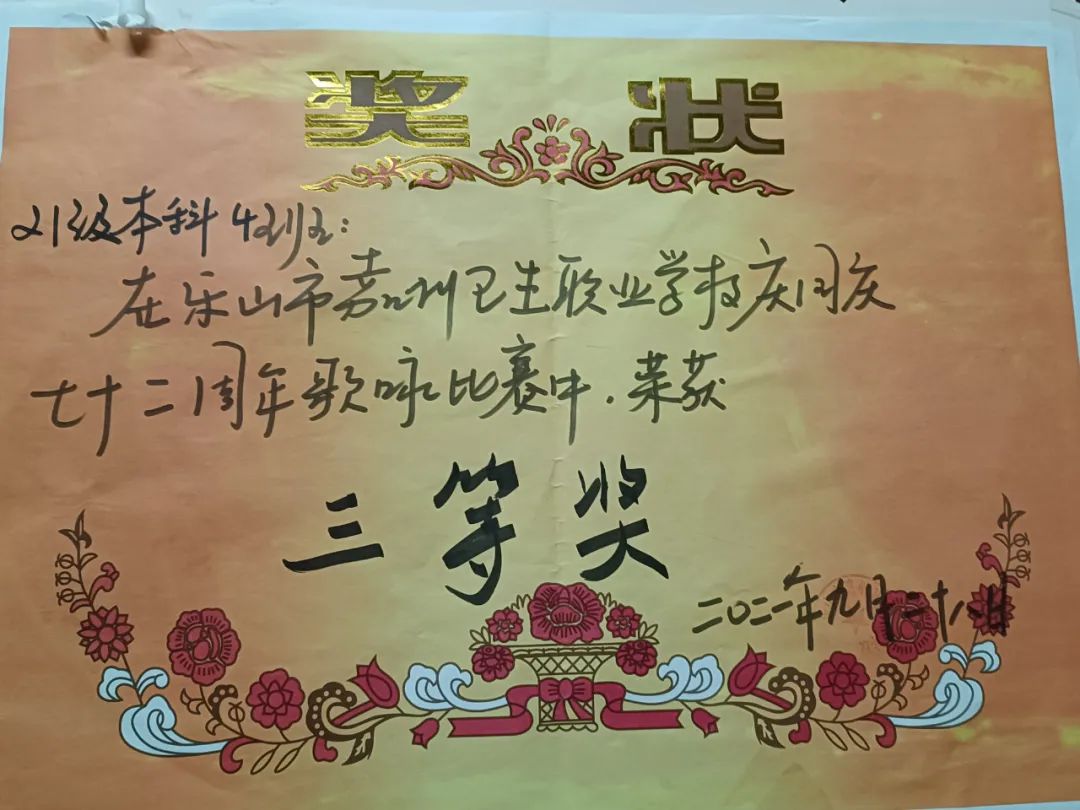 奖状
21级本科4班:
在乐山市嘉州卫生职业学校庆国庆
七十二周年歌咏比赛中.荣获
三等奖
二〇二一年九月二十八日